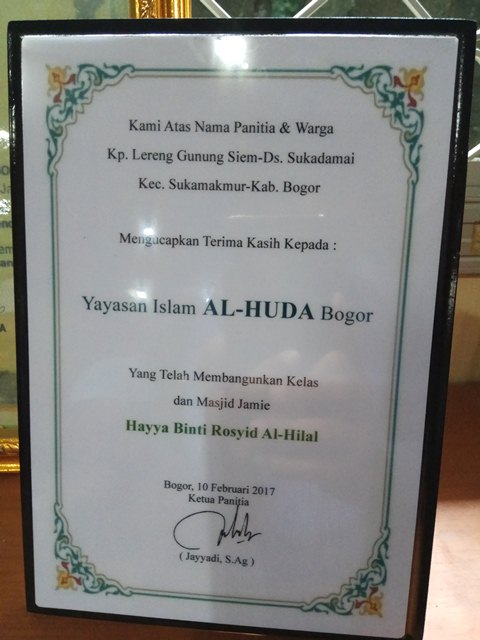 Kami Atas Nama Panitia & Warga
Kp. Lereng Gunung Siem-Ds. Sukadamai
Kec. Sukamakmur-Kab. Bogor
Mengucapkan Terima Kasih Kepada :
Yayasan Islam AL-HUDA Bogor
Yang Telah Membangunkan Kelas
dan Masjid Jamie
Hayya Binti Rosyid Al-Hilal
Bogor, 10 Februari 2017
Ketua Panitia
( Jayyadi, S.Ag )